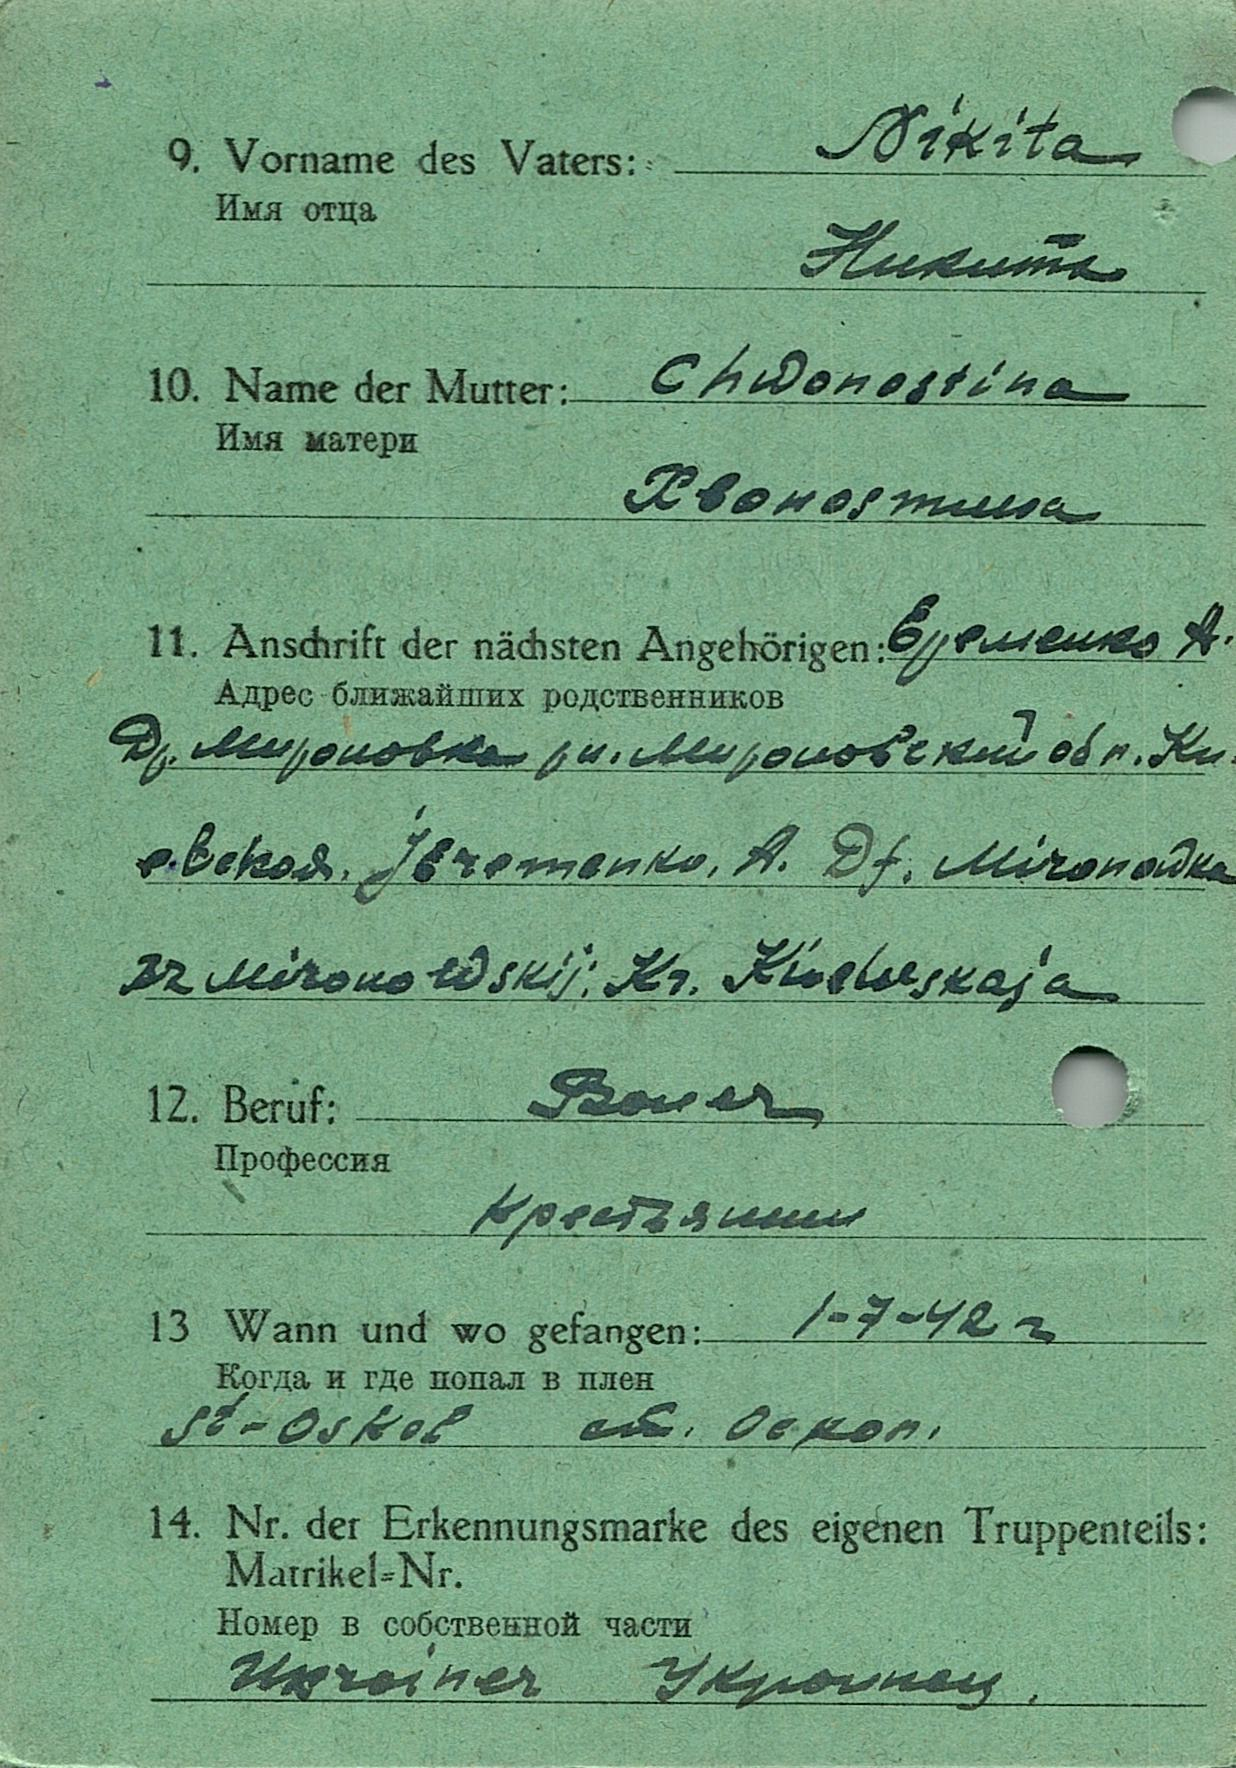 9. Vorname des Vaters: Nikita
Имя отца
Никита
10. Name der Mutter: Chwonostina
Имя матери
Хвоностина
11. Anschrift der nächsten Angehörigen: Еременко А.
Адрес ближайших родственников
Др. Мироновка рн. Мироновский обл. Ки-
евская. Jeremenko. A. Df. Mironowka
Mironowskij; Kr. Kiewskaja
12. Beruf: Bauer
Профессия
Крестьянин
13 Wann und wo gefangen: 1-7-42 г
Когда и где попал в плен
St-Oskol ст. Оскол.
14. Nr. der Erkennungsmarke des eigenen Truppenteils:
Matrikel=Nr.
Номер в собственной части
Ukrainer Украинец.